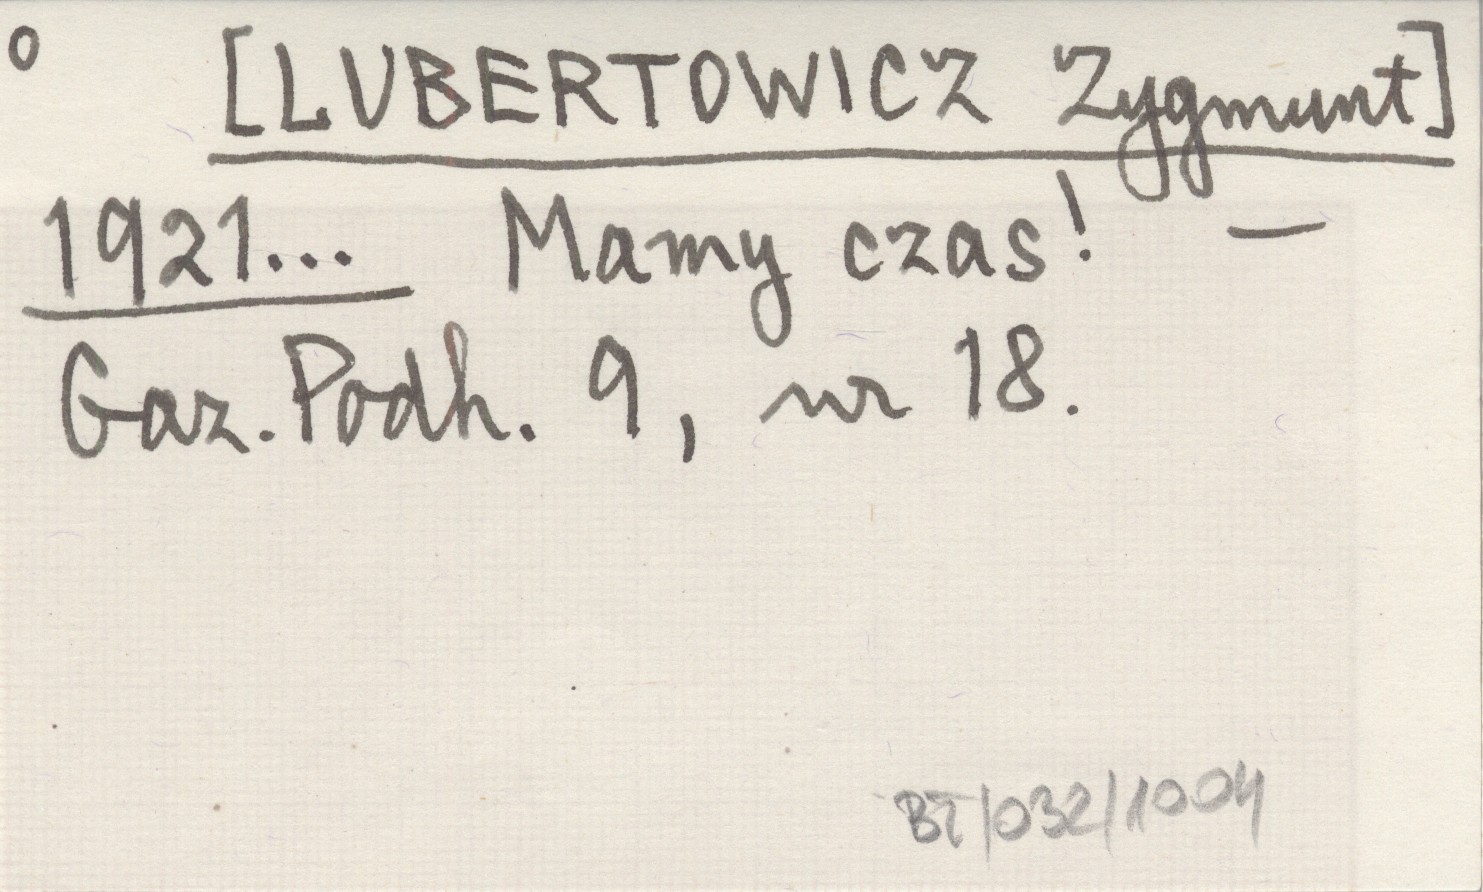 o [LUBERTOWICZ Zygmunt]
1921... Mamy czas! —
Gaz. Podh. 9, nr 18.
BT/032/1004